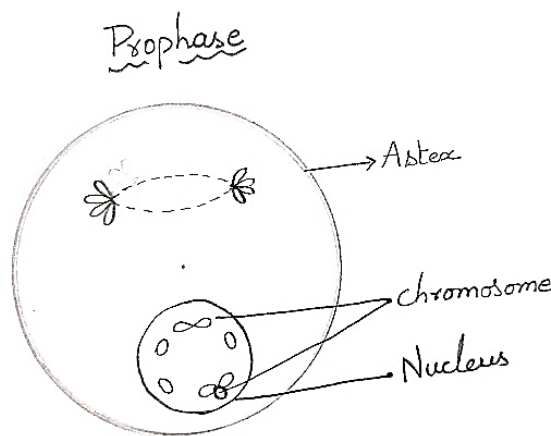 Prophase
Aster
chromosome
Nucleus